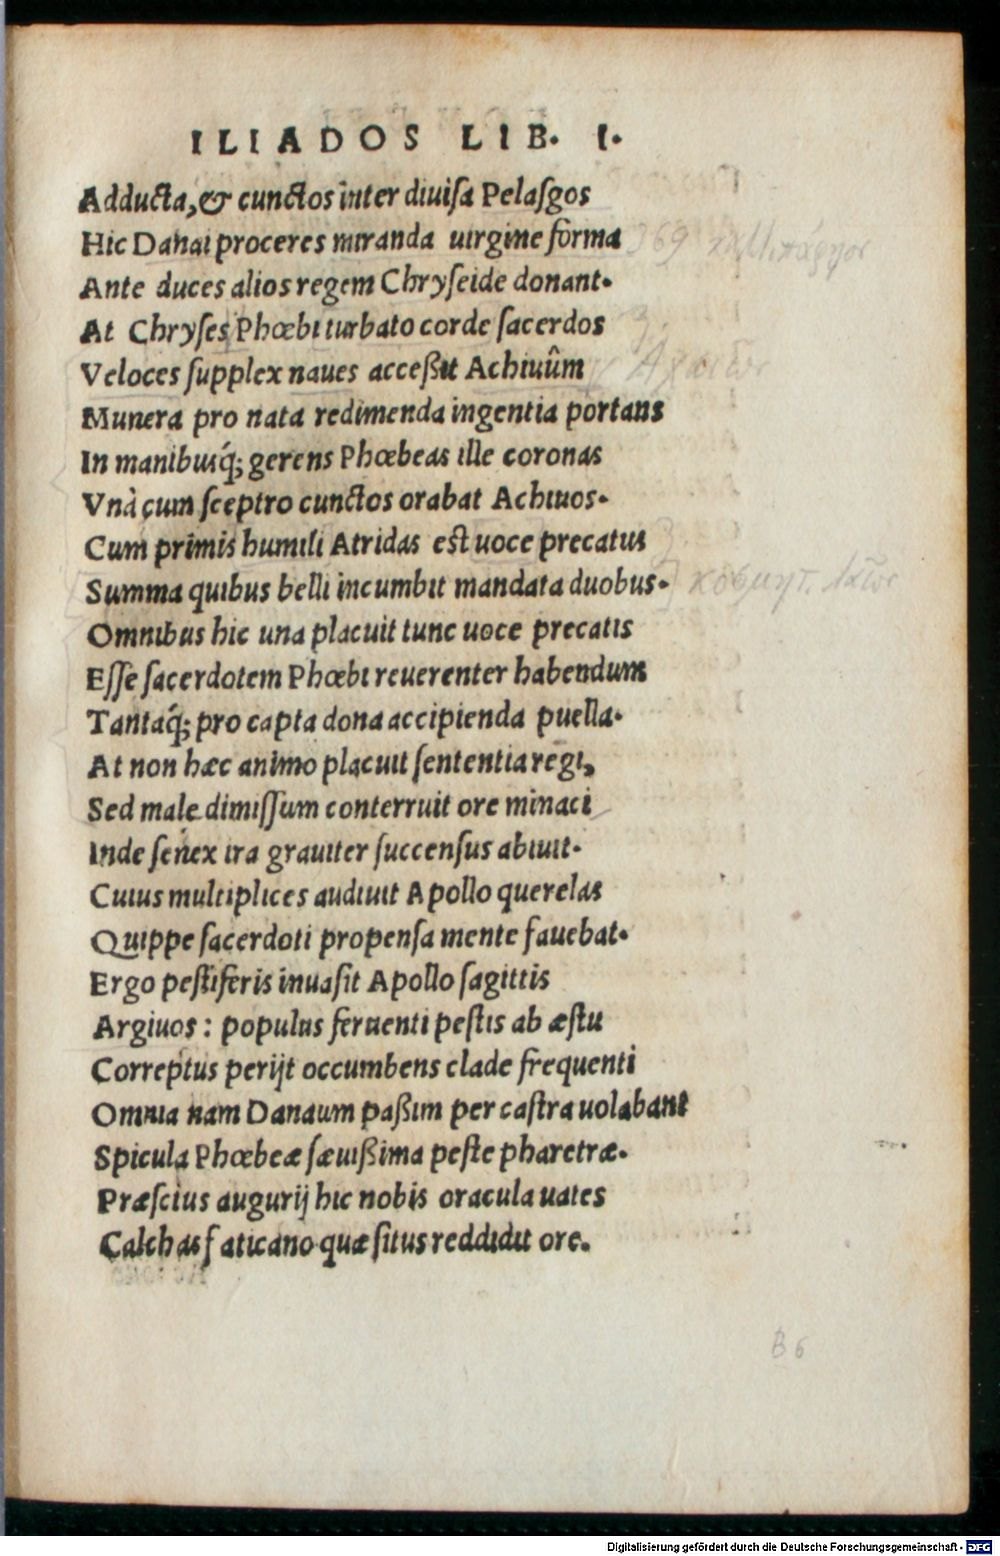 ILIADOS LIB. I.
Adducta, & cunctos inter diuisa Pelasgos
Hic Danai proceres miranda uirgine forma 369
Ante duces alios regem Chryseide donant.
At Chryses Phœbi turbato corde sacerdos
Veloces supplex naues acceßit Achiuûm
Munera pro nata redimenda ingentia portans
In manibusq́; gerens Phœbeas ille coronas
Vnà cum sceptro cunctos orabat Achiuos.
Cum primis humili Atridas est uoce precatus
Summa quibus belli incumbit mandata duobus.
Omnibus hic una placuit tunc uoce precatis
Esse sacerdotem Phœbi reuerenter habendum
Tantaq́; pro capta dona accipienda puella.
At non hæc animo placuit sententia regi,
Sed male dimissum conterruit ore minaci
Inde senex ira grauiter succensus abiuit.
Cuius multiplices audiuit Apollo querelas
Quippe sacerdoti propensa mente fauebat.
Ergo pestiferis inuasit Apollo sagittis
Argiuos : populus feruenti pestis ab æstu
Correptus perijt occumbens clade frequenti
Omnia nam Danaum paßim per castra uolabant
Spicula Phœbeæ sæuißima peste pharetræ.
Præscius augurij hic nobis oracula uates
Calchas faticano quæsitus reddidit ore.
B 6
Digitalisierung gefördert durch die Deutsche Forschungsgemeinschaft - DFG